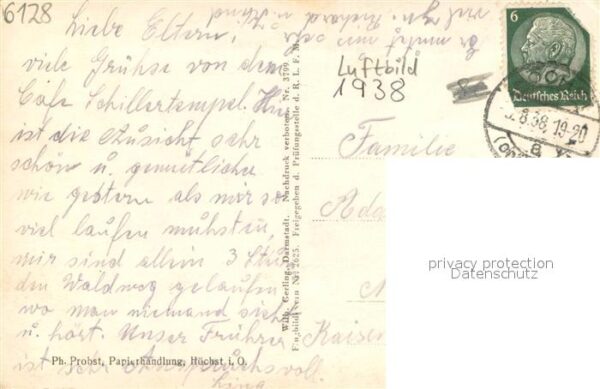 6128
Liebe Eltern,
viele Grühse von dem
Cafe Schillertempel. Hier
ist die Aussicht sehr
schön u. gemütlicher
wie gestern als mir so
viel laufen muhsten,
mir sind allein 3 Stud
den Waldweg gelaufen
wo man niemand sieht
u. hört. Unser Führer
ist sehr Anspruchsvoll.
Ph. Probst, Papierhandlung, Höchst i. O.
Wilh. Gerling, Darmstadt. Nachdruck verboten. Nr. 3799
Flugbild frei Nr. 2025. Freigegeben d. Prüfungsstelle d. R. L. F. M.
Luftbild
1938
6
Deutsches Reich
8.38.19-20
a
Familie
Ada
Kaiser
privacy protection
Datenschutz